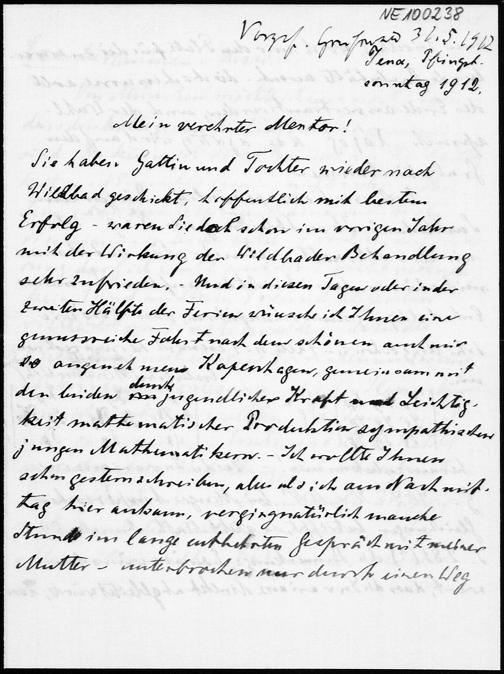 NE100238
31.5.1912
Jena, Pfingst-
sonntag 1912.
Mein verehrter Mentor!
Sie haben Gattin und Tochter wieder nach
Wildbad geschickt, hoffentlich mit bestem
Erfolg - waren Sie doch schon im vorigen Jahr
mit der Wirkung der Wildbader Behandlung
sehr zufrieden. Und in diesen Tagen oder in der
zweiten Hälfte der Ferien wünsche ich Ihnen eine
genussreiche Fahrt nach dem schönen auch mir
so angenehmen Kopenhagen, gemeinsam mit
den beiden durch jugendliche Kraft und Leichtig-
keit mathematischer Produktion sympathischen
jungen Mathematikern. - Ich wollte Ihnen
schon gestern schreiben, aber als ich am Nachmit-
tag hier ankam, verging natürlich manche
Stunde im lange entbehrten Gespräch mit meiner
Mutter - unterbrochen nur durch einen Weg